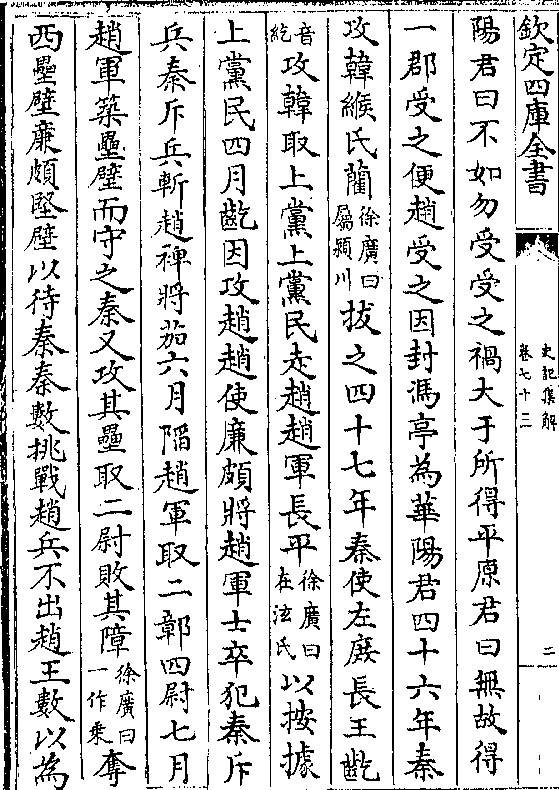 欽定四庫全書
史記集解
卷七十三
二
陽君曰不如勿受受之禍大于所得平原君曰無故得
一郡受之便趙受之因封馮亭為華陽君四十六年秦
攻韓緱氏藺徐廣曰屬潁川拔之四十七年秦使左庶長王齕
音紇攻韓取上黨上黨民走趙趙軍長平徐廣曰在泫氏以按據
上黨民四月齕因攻趙趙使廉頗將趙軍士卒犯秦斥
兵秦斥兵斬趙裨將茄六月䧟趙軍取二鄣四尉七月
趙軍築壘壁而守之秦又攻其壘取二尉敗其障徐廣曰一作乗奪
西壘壁廉頗堅壁以待秦秦數挑戰趙兵不出趙王數以為